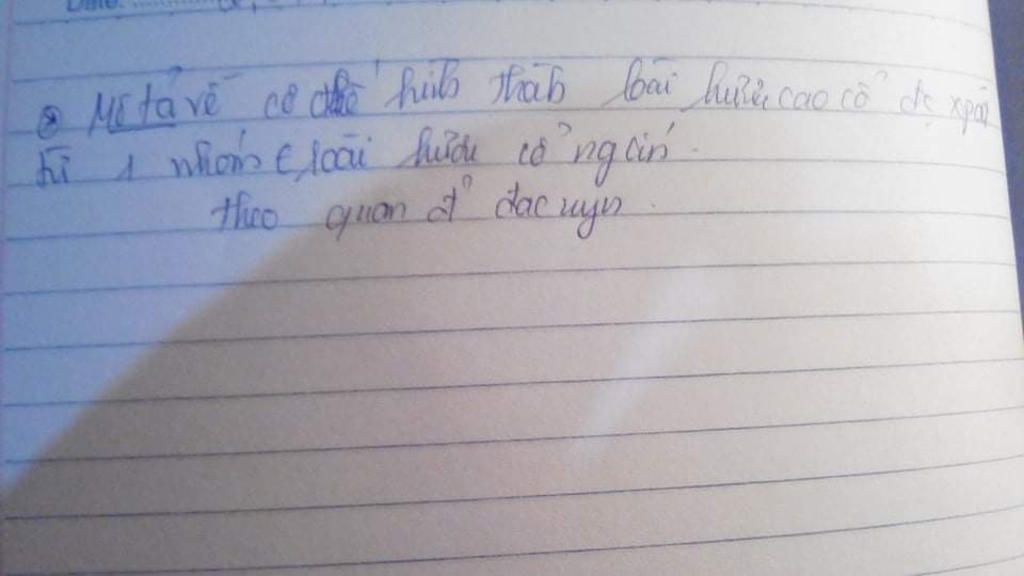 Date:
Mô tả về cơ chế hình thành loài hươu cao cổ đc xphát
từ 1 nhóm € loài hươu cổ ngắn.
theo quan đ' đacuyn.